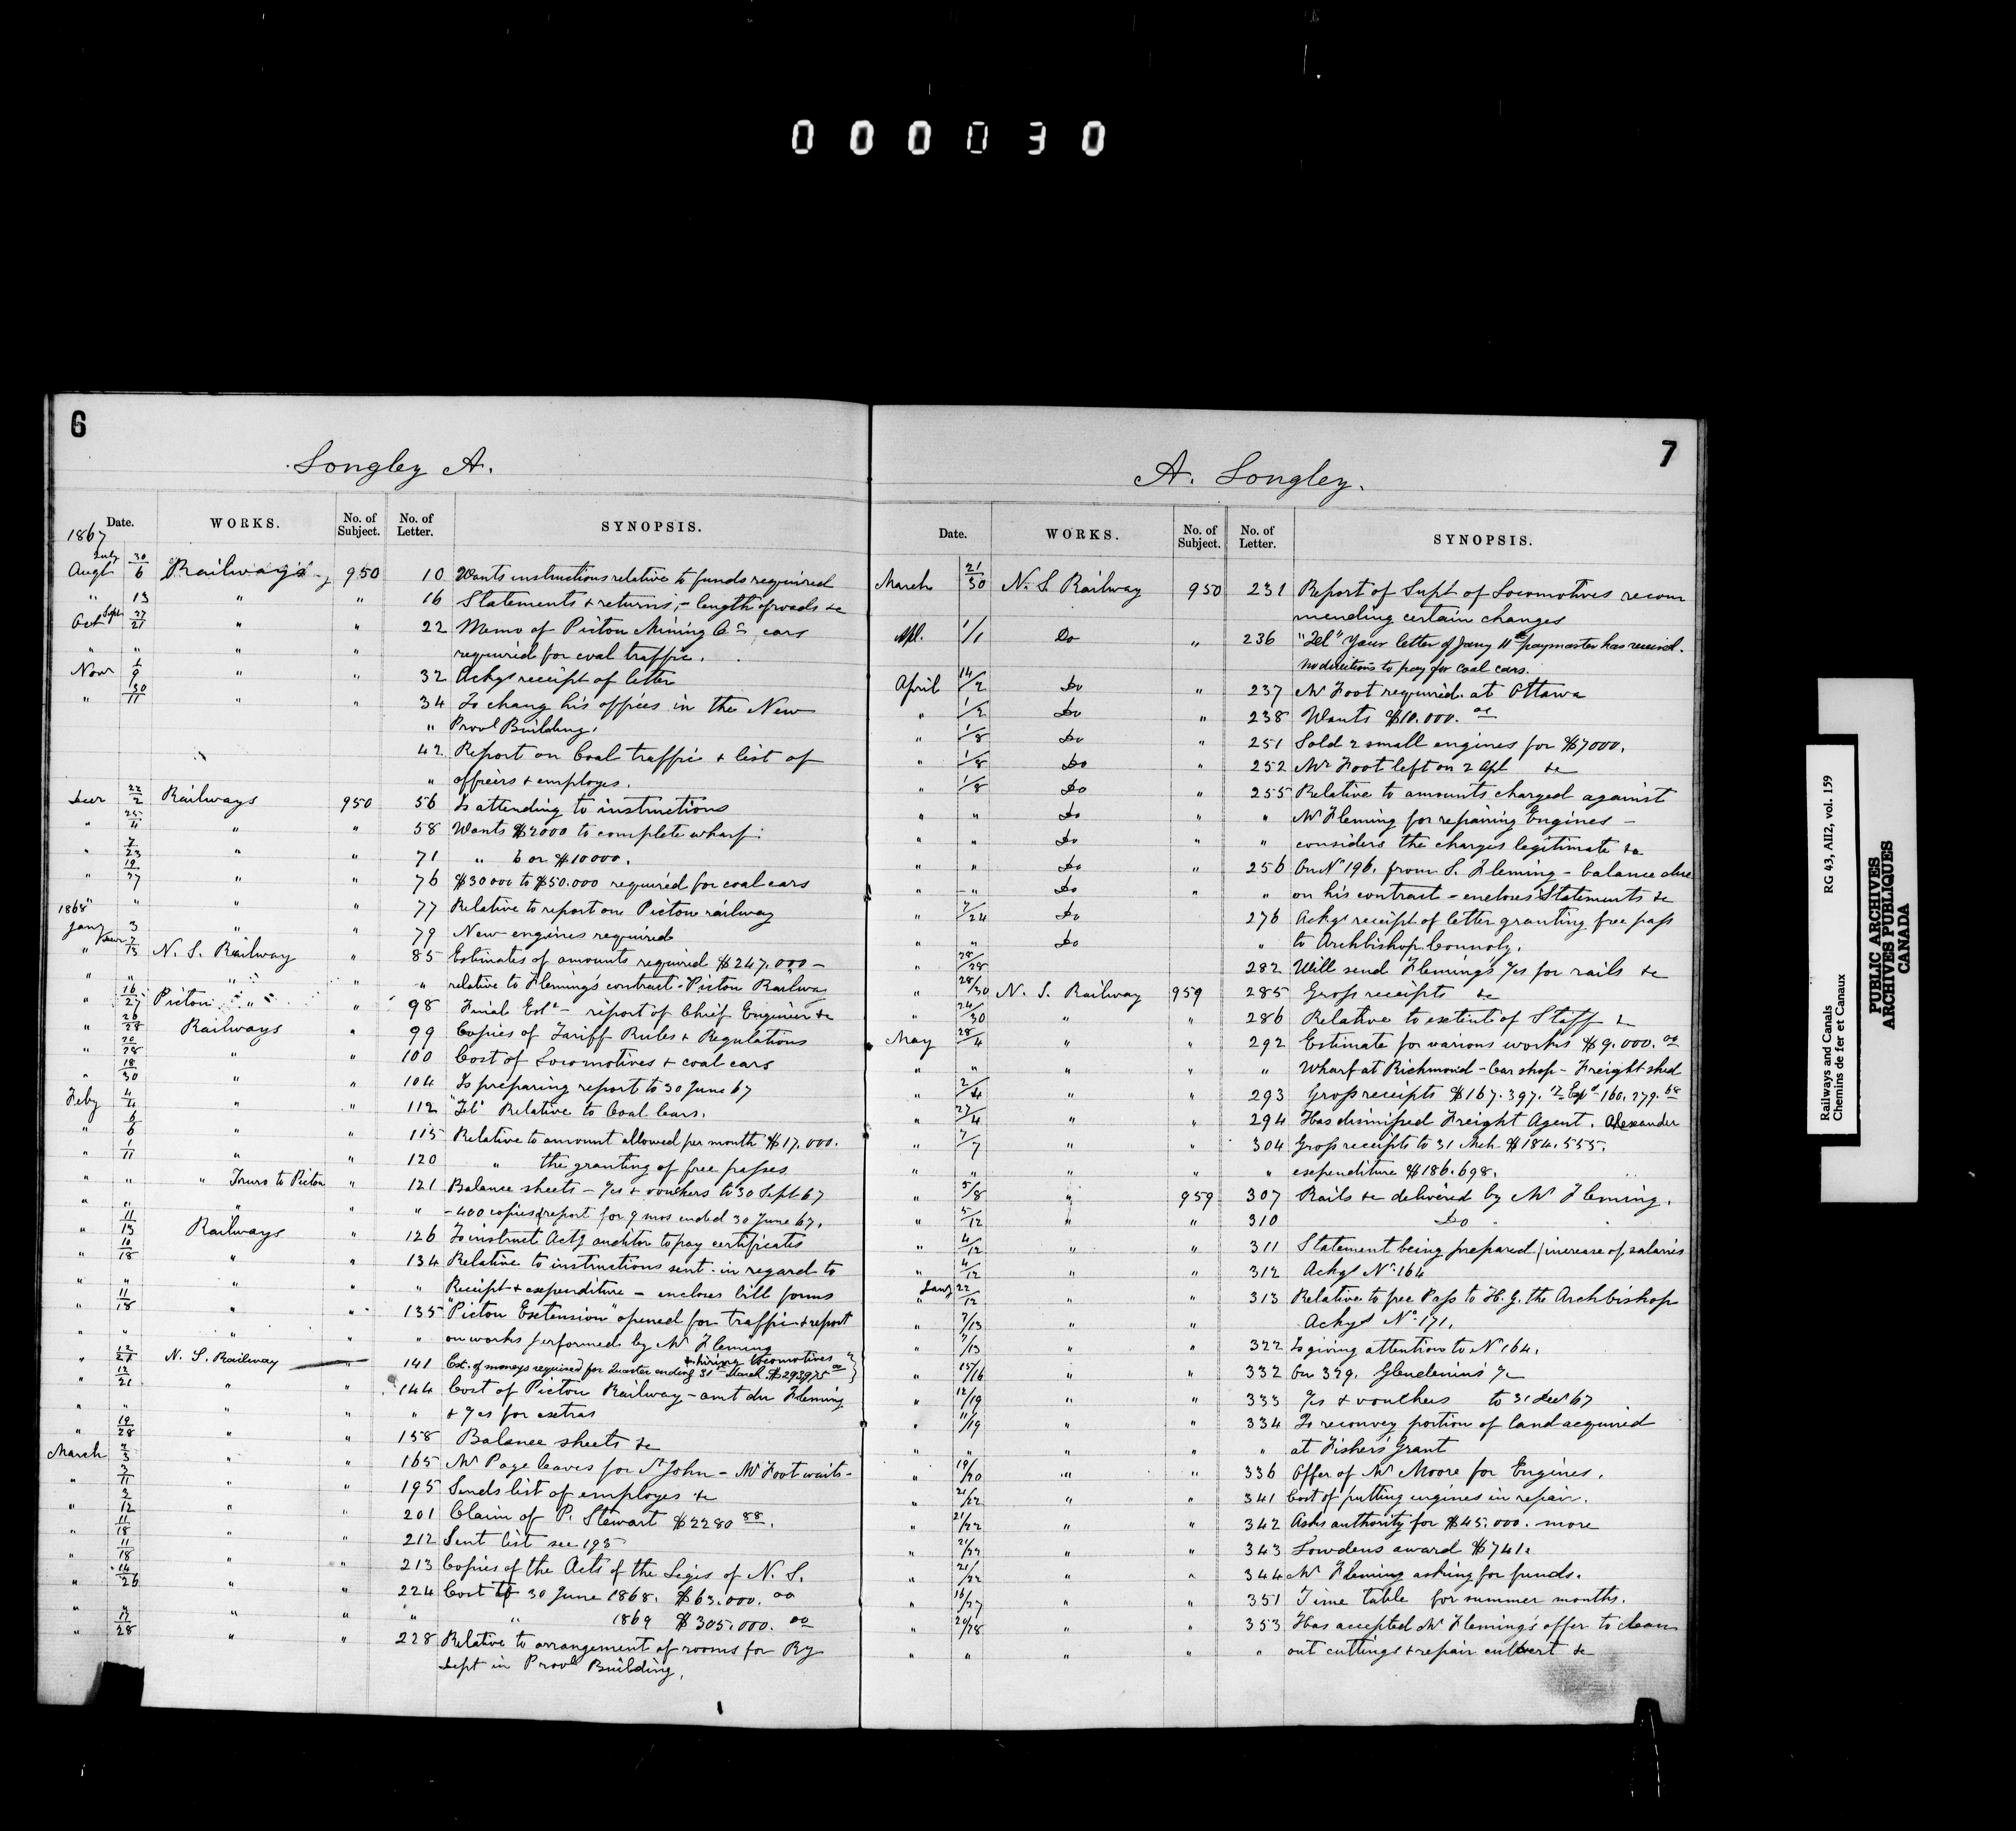 000030
6
Longley A.
Date. WORKS. No. of Subject. No. of Letter. SYNOPSIS.
1867
July Augt 30/6 Railways 950 10 Wants instructions relative to funds required
" 13 " " 16 Statements & returns, - length of roads &c
Oct Sept 27/21 " " 22 Memo of Picton Mining Co cars
" " " " required for coal traffic.
Novr 1/9 " " 32 Ackgs receipt of letter
" 30/11 " " 34 To chang his offices in the New
" Provl Building.
42 Report on Coal traffic & list of
" officers & employes.
Decr 22/2 Railways 950 56 Is attending to instructions
" 25/4 " " 58 Wants $2000 to complete wharf.
" 7/23 " " 71 " 6 or $10000.
" 19/27 " " 76 $30000 to $50.000 required for coal cars
" " " " 77 Relative to report on Picton railway
1868 Jany 3 " " 79 New engines required
" Decr 7/13 N. S. Railway " 85 Estimates of amounts required $247,000 -
" " " " " relative to Flemings contract - Picton Railway
" 16/27 Picton " " 98 Final Est - report of Chief Engineer &c
" 20/28 Railways " 99 Copies of Tariff Rules & Regulations
" 20/28 " " 100 Cost of Locomotives & coal cars
" 18/30 " " 104 Is preparing report to 30 June 67
Feby 4/4 " " 112 "Tel" Relative to Coal Cars.
" 6/6 " " 115 Relative to amount allowed per month $17,000.
" 1/11 " " 120 " the granting of free passes
" " " Truro to Picton " 121 Balance sheets - %s & vouchers to 30 Sept 67
" " " " " - 400 copies of report for 9 mos ended 30 June 67.
" 11/13 Railways " 126 To instruct Actg auditor to pay certificates
" 10/18 " " 134 Relative to instructions sent in regard to
" " " " " Receipt & expenditure - encloses bill forms
" 11/18 " " 135 "Picton Extension" opened for traffic & report
" " " " " on works performed by Mr Fleming
" 12/21 N. S. Railway " 141 Est. of moneys required for Quarter ending 31st March $293975 & hiring locomotives
" 12/21 " " 144 Cost of Picton Railway - amt due Fleming
" " " " " & %s for extras
" 19/28 " " 158 Balance sheets &c
March 2/3 " " 165 Mr Page leaves for St John - Mr Foot waits -
" 3/11 " " 195 Sends list of employes &c
" 3/12 " " 201 Claim of P. Stewart $2280 88.
" 11/18 " " 212 Sent list see 195
" 11/18 " " 213 Copies of the Acts of the Legis of N. S.
" 14/26 " " 224 Cost to 30 June 1868. $63.000. 00
" " " " " " 1869 $305.000. 00
" 17/28 " " 228 Relative to arrangement of rooms for Ry
Dept in Provl Building.
7
A. Longley.
Date. WORKS. No. of Subject. No. of Letter. SYNOPSIS.
March 21/30 N. S. Railway 950 231 Report of Supt of Locomotives recom
mending certain changes
Apl. 1/1 Do " 236 "Tel" Your letter of Jany 11th paymaster has received.
No directions to pay for Coal cars.
April 14/2 Do " 237 Mr Foot required at Ottawa
" 1/2 Do " 238 Wants $10.000. 00
" 1/8 Do " 251 Sold 2 small engines for $7000.
" 1/8 Do " 252 Mr Foot left on 2 Apl &c
" 1/8 Do " 255 Relative to amounts charged against
" " Do " " Mr Fleming for repairing Engines -
" " Do " " considers the charges legitimate &c
" " Do " 256 On No 196. from S. Fleming - balance due
" " Do " " on his contract - encloses Statements &c
" 7/24 Do 276 Ackgs receipt of letter granting free pass
" " Do " to Archbishop Connoly.
" 28/28 282 Will send Flemings %s for rails &c
" 28/30 N. S. Railway 959 285 Gross receipts &c
" 24/30 " " 286 Relative to extent of Staff &
May 28/4 " " 292 Estimate for various works $9.000. 00
" " " " " Wharf at Richmond - Car shop - Freight shed
" 2/4 " " 293 Gross receipts $167.397. 12 Expe 160.279. 68
" 27/4 " " 294 Has dismissed Freight Agent. Alexander
" 7/7 " " 304 Gross receipts to 31 Mch $184.555.
" " " " " expenditure $186.698.
" 5/8 " 959 307 Rails &c delivered by Mr Fleming.
" 5/12 " " 310 Do
" 4/12 " " 311 Statement being prepared (increase of salaries
" 4/12 " " 312 Ackgs No 164
" Jany 22/12 " " 313 Relative to free Pass to H. G. the Archbishop
" 7/13 " " Ackgs No 171.
" 7/13 " " 322 Is giving attention to No 164.
" 15/16 " " 332 On 329. Glendenins %
" 12/19 " " 333 %s & vouchers to 31 Decr 67
" 11/19 " " 334 To reconvey portion of land acquired
" " " " " at Fishers Grant
" 19/20 " " 336 Offer of Mr Moore for Engines.
" 21/22 " " 341 Cost of putting engines in repair.
" 21/22 " " 342 Asks authority for $45.000. more
" 21/22 " " 343 Lowdens award $741.
" 21/22 " " 344 Mr Fleming asking for funds.
" 16/27 " " 351 Time table for summer months.
" 20/28 " " 353 Has accepted Mr Flemings offer to clean
" " " " " out cuttings & repair culvert &c
Railways and Canals
Chemins de fer et Canaux
RG 43, AII2, vol. 159
PUBLIC ARCHIVES
ARCHIVES PUBLIQUES
CANADA